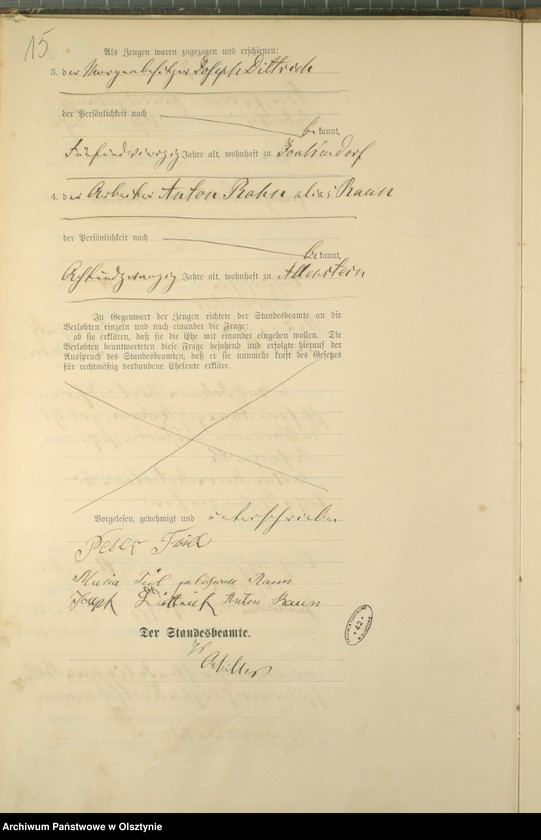 15
Als Zeugen waren zugezogen und erschienen:
3. der Morgenbesitzer Joseph Dittrich
der Persönlichkeit nach
bekannt,
Fünfundvierzig Jahre alt, wohnhaft zu Jonkendorf
4. der Arbeiter Anton Rahn alias Raun
der Persönlichkeit nach
bekannt,
Achtundzwanzig Jahre alt, wohnhaft zu Allenstein
In Gegenwart der Zeugen richtete der Standesbeamte an die
Verlobten einzeln und nach einander die Frage:
ob sie erklären, daß sie die Ehe mit einander eingehen wollen. Die
Verlobten beantworteten diese Frage bejahend und erfolgte hierauf der
Ausspruch des Standesbeamten, daß er sie nunmehr kraft des Gesetzes
für rechtmäßig verbundene Eheleute erkläre.
Vorgelesen, genehmigt und unterschrieben
Peter
Maria geborene Raun
Joseph Dittrich Anton Raun
Der Standesbeamte.
42
Archiwum Państwowe w Olsztynie